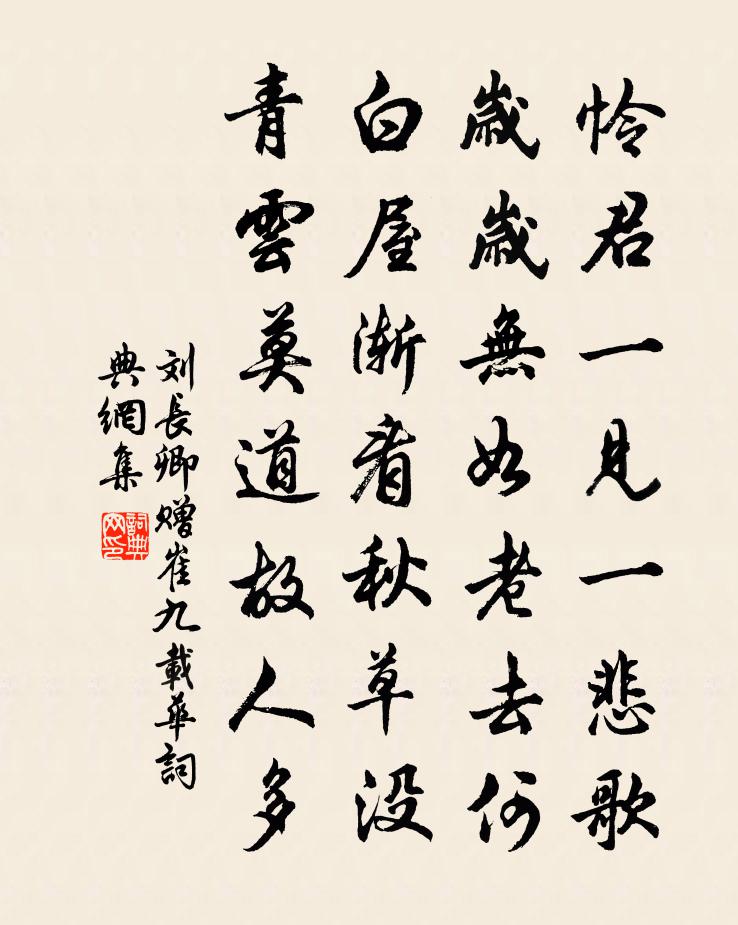 怜君一見一悲歌
歲歲無如老去何
白屋漸看秋草没
青雲莫道故人多
刘長卿赠崔九載華詞
典網集
詞典
网印